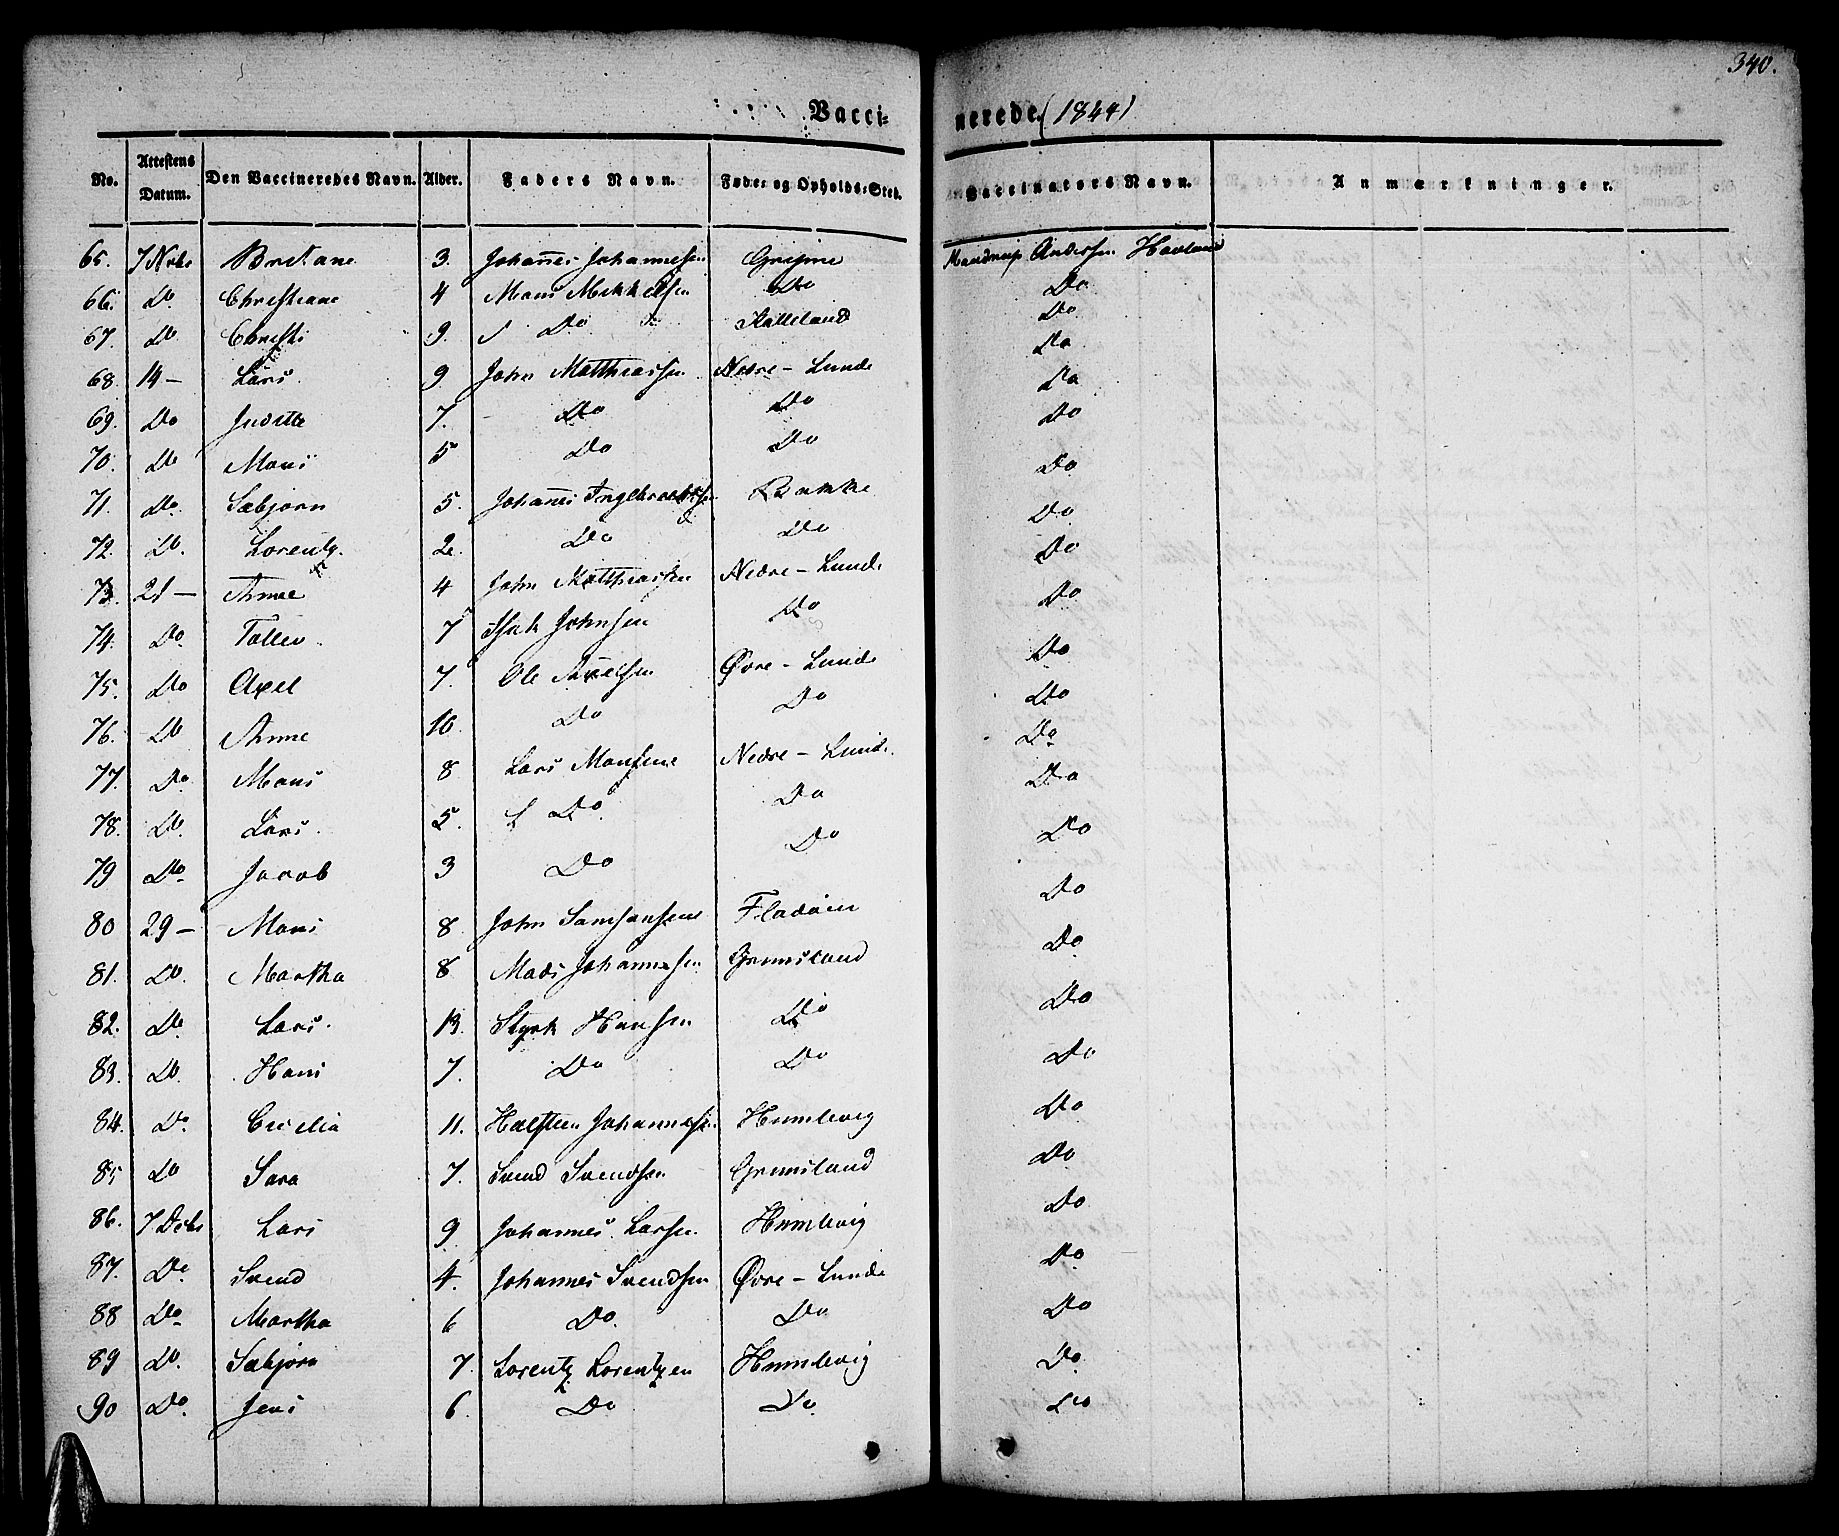 340.
Vaccinerede. (1844)
No. Attestens Datum. Den Vaccineredes Navn. Alder. Faders Navn. Føde- og Opholds-Sted. Vaccinators Navn. Anmærkninger.
65. 7 Nvbr 3. Johannes Johannesen Grijme Mandrup Andersen Havland
66. Do Christiane 4 Mons Mikkelsen Do Do
67. Do Christi 9. Do Do
68. 14 – Lars 9 John Matthiassen Nedre – Lunde Do
69. Do Judithe 7. Do Do Do
70. Do Mons 5 Do Do Do
71. Do Sæbjørn 5. Johannes Ingebrectsen Bakke Do
72. Do. Lorentz. 2. Do Do Do
73. 21 – Anne 4 John Matthiassen Nedre – Lunde Do
74. Do. Tollev. 7 Isak Johnsen Do Do
75. Do Axel 7. Ole Axelsen Øvre – Lunde Do
76. Do Anne 10. Do Do Do
77. Do. Mons 8 Lars Monsene Nedre – Lunde Do
78. Do. Lars. 5. Do. Do Do
79 Do Jacob 3 Do Do Do
80 29 – Mons 8. John Samsonsene Fladøen Do
81. Do. Martha 8 Mads Johannesen Grimsland Do
82. Do. Lars. 13. Styrk Hansen Do Do
83. Do. Hans 7. Do Do Do
84. Do. Cecilia 11. Halsteen Johannesen Humlevig Do
85 Do Sara 7. Svend Svendsen Grimsland Do
86. 7 Debr Lars 9 Johannes Larsen Humlevig Do
87. Do Svend 4. Johannes Svendsen Øvre – Lunde Do
88 Do Martha 6 Do. Do Do
89 Do. Sæbjørn 7. Lorentz Lorentzen Humlevig Do
90 Do. Jens 6. Do Do. Do